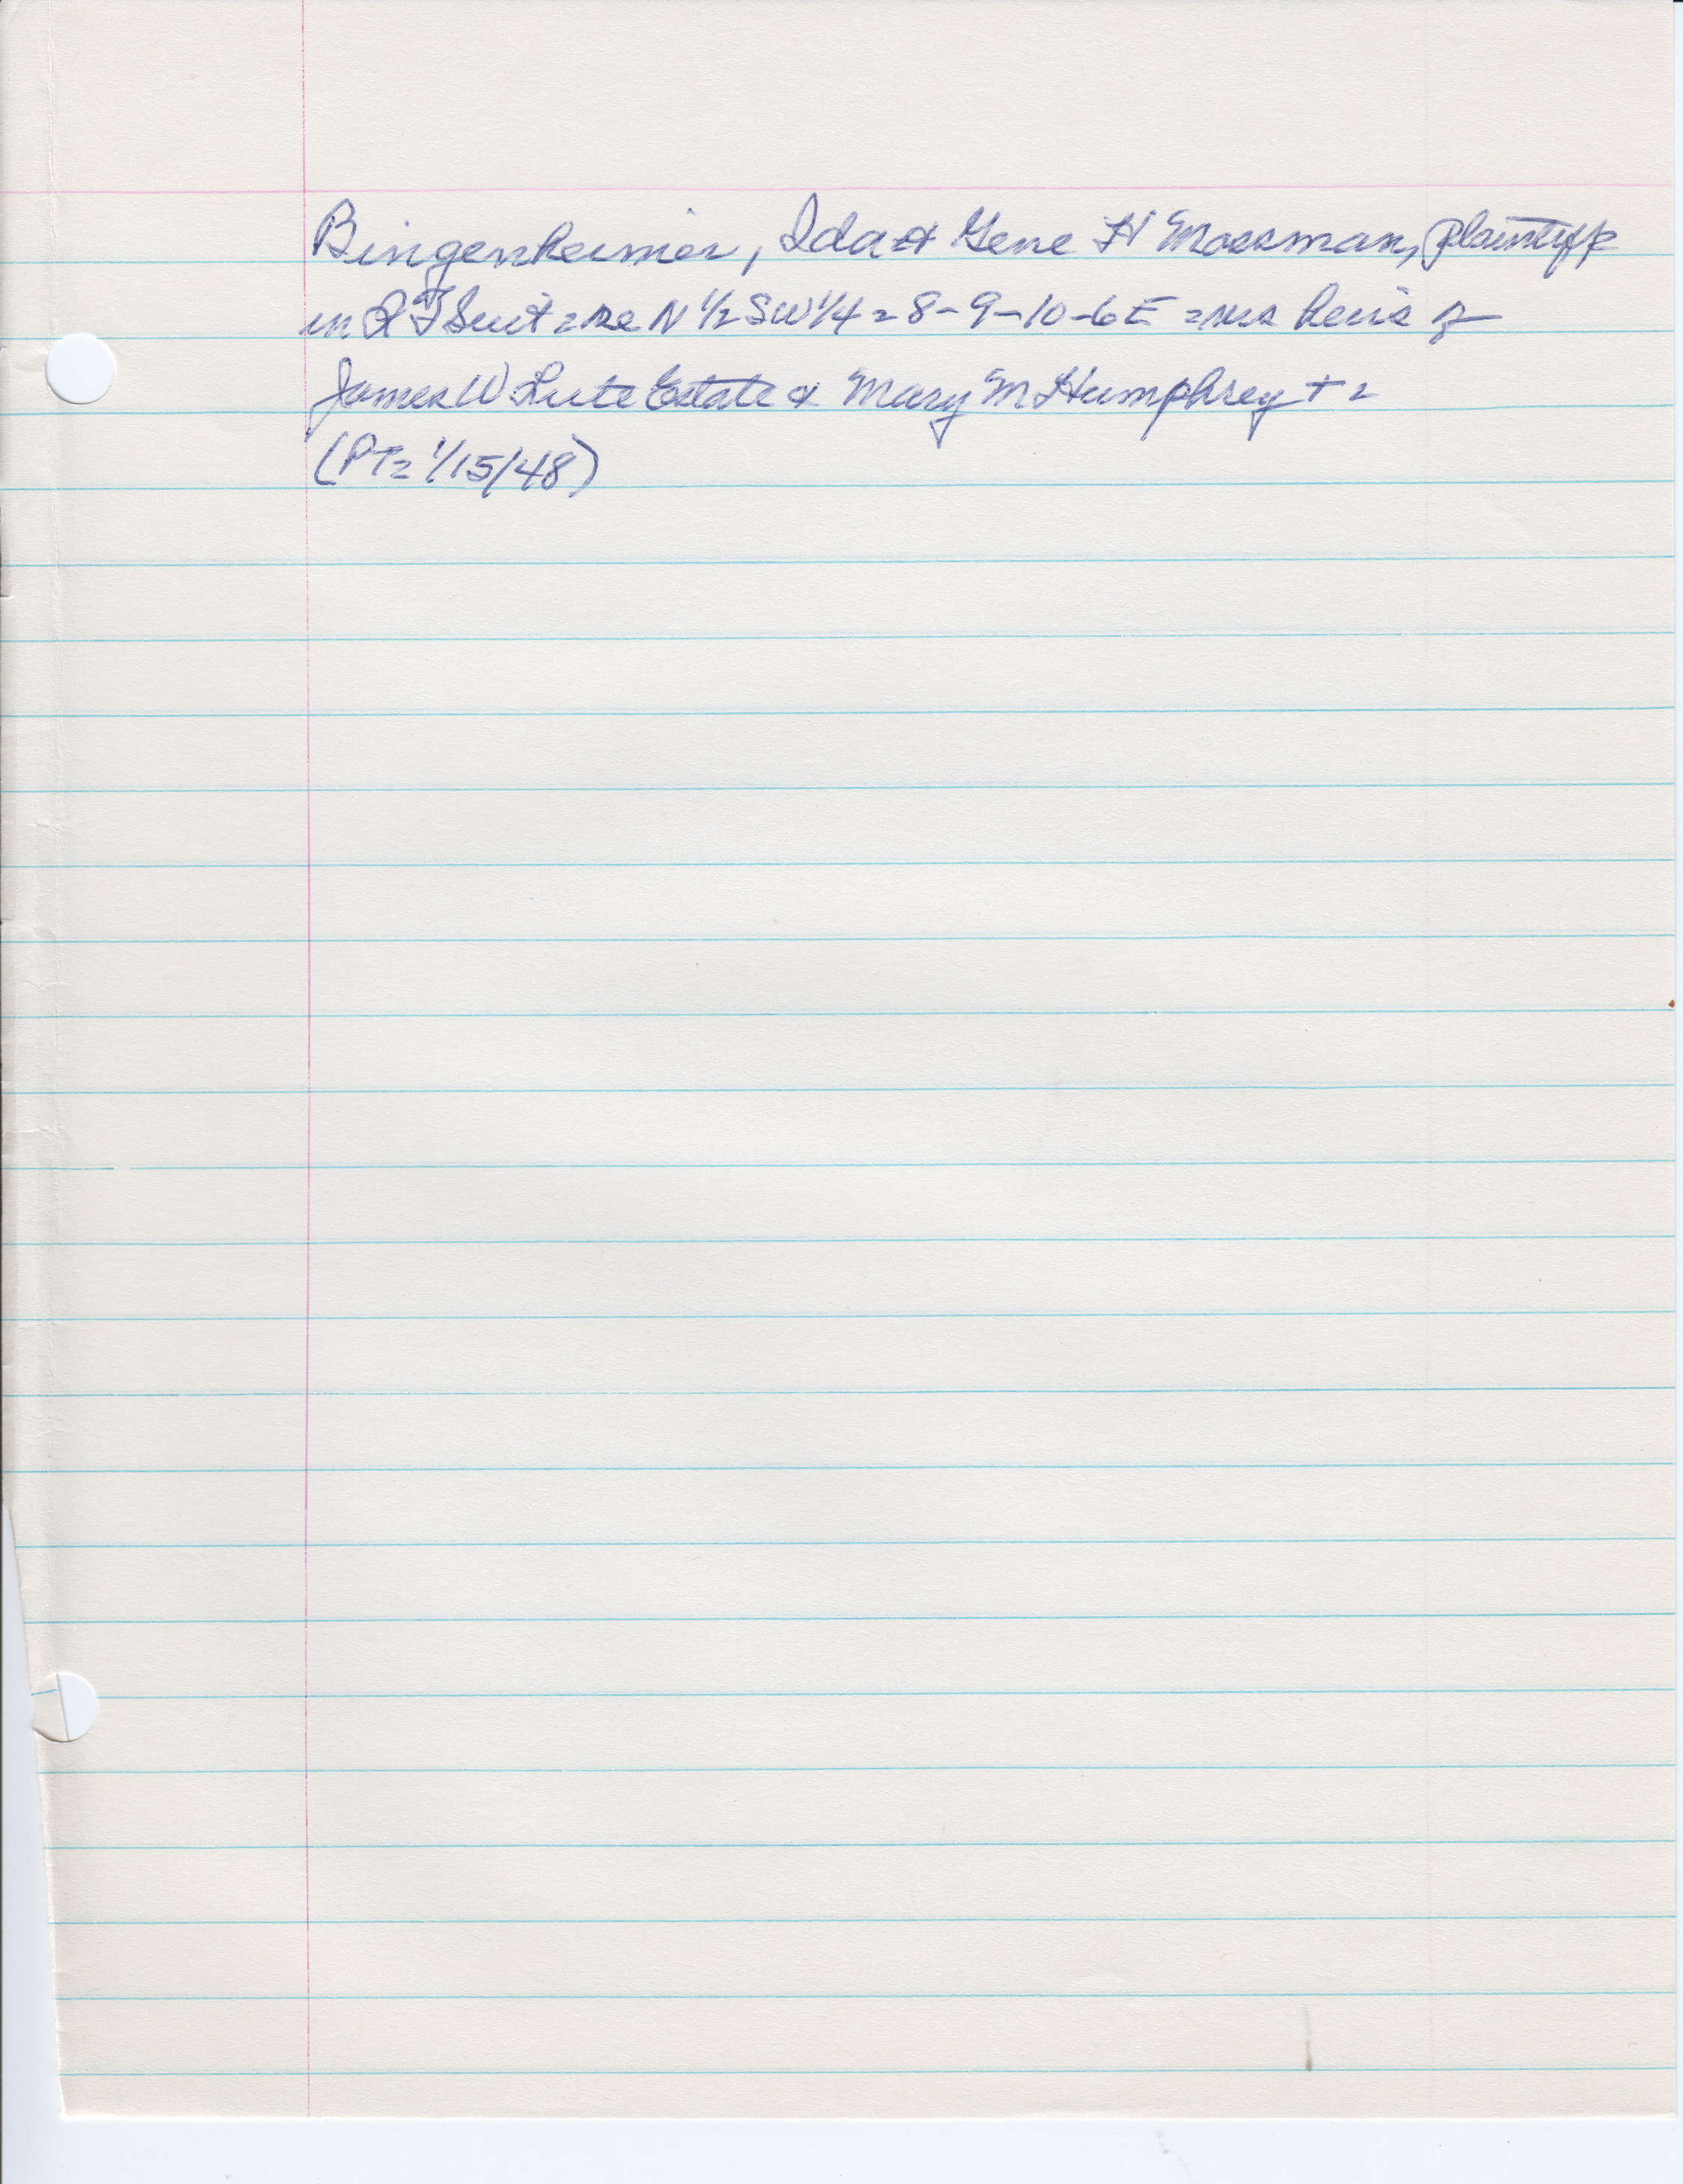 Bingenheimer, Ida & Gene H Mossman, plaintiff
in QT Suit = re N 1/2 SW 1/4 = 8-9-10-6E = vs heirs of
James W Lute Estate & Mary M Humphrey + =
(PT= 1/15/48)